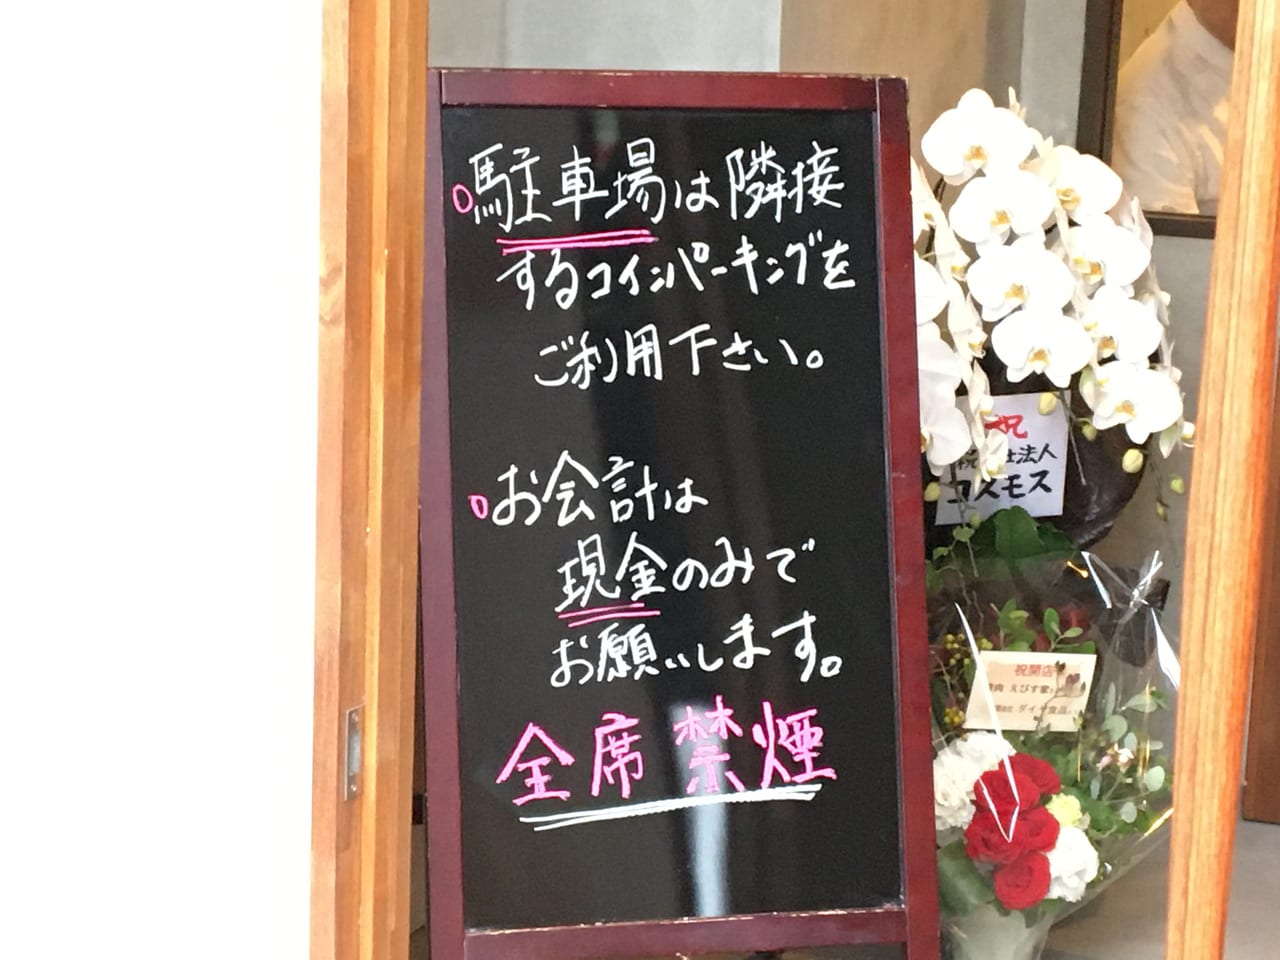 駐車場は隣接
するコインパーキングを
ご利用下さい。
お会計は
現金のみで
お願いします。
全席 禁煙
祝
税理士法人
コスモス
祝開店
えびす家
ダイヤ食品